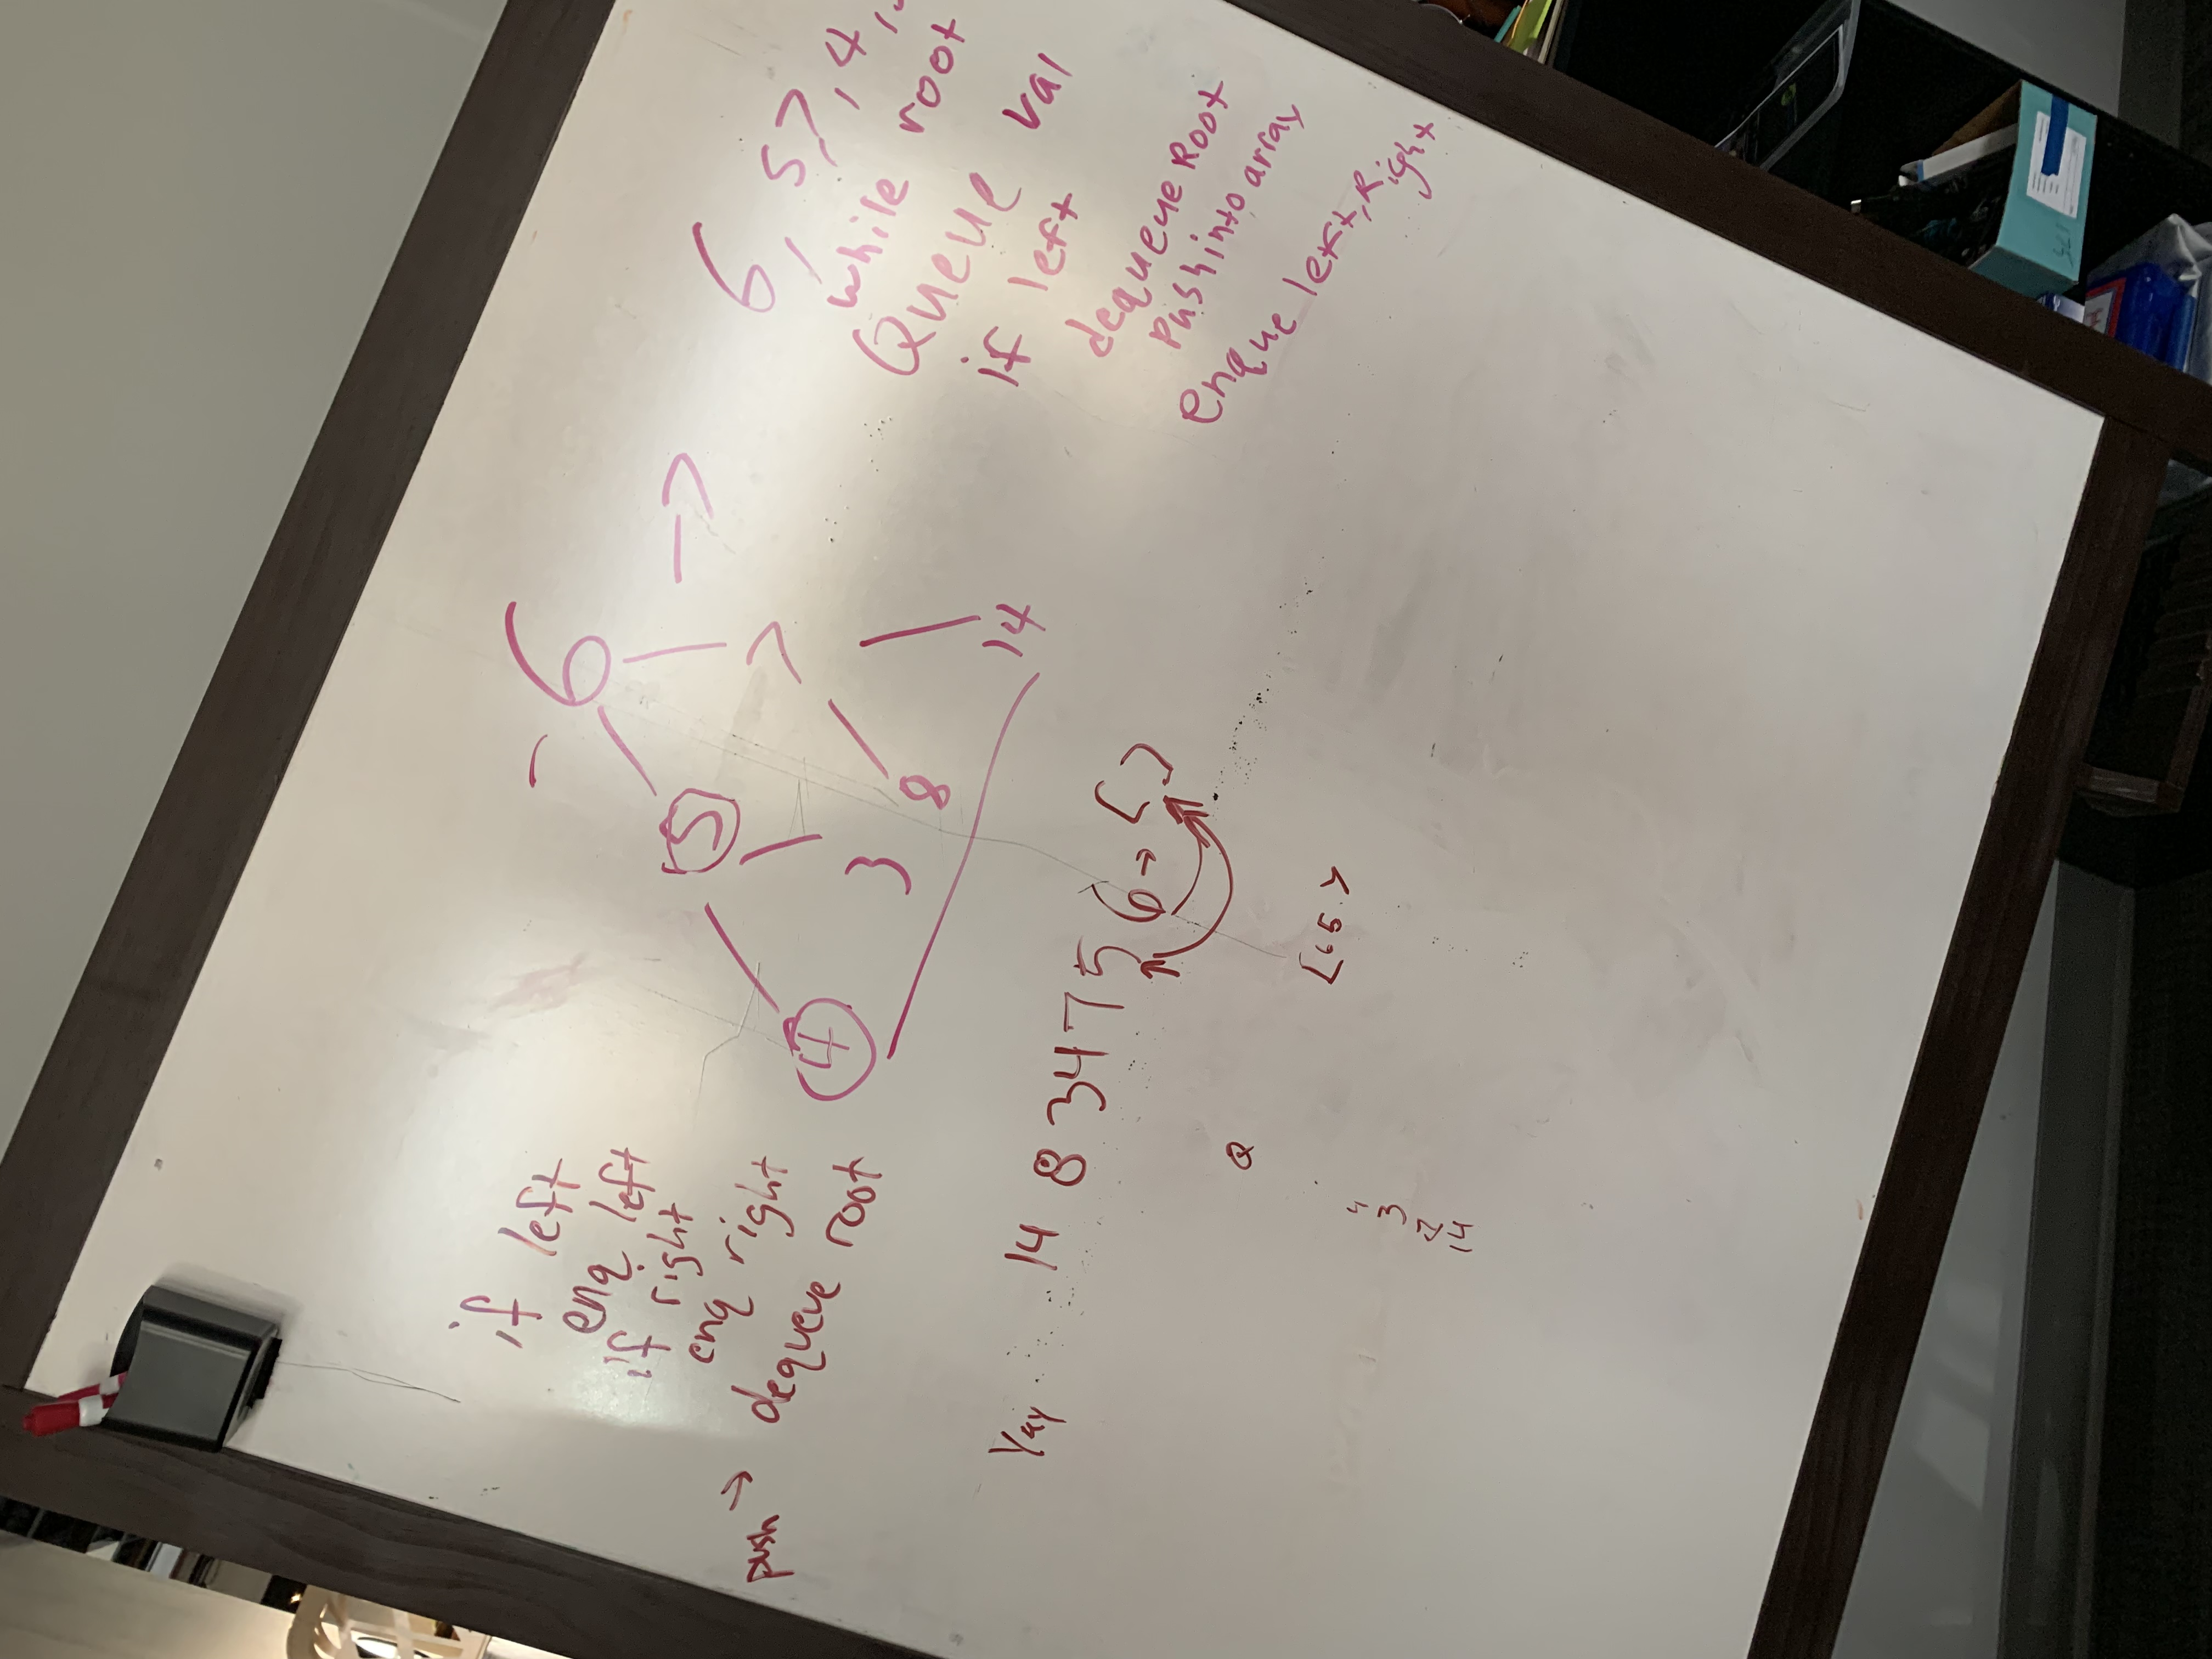 if left
enq left
if right
enq right
push → dequeue root
6
5
7
4
3
8
14
→
6, 57, 4,
while root
Queue val
if left
dequeue Root
Push into array
enque left, Right
Yay 14 8 3 4 7 5 6 → [ ]
Q
[6 5
4
3
14